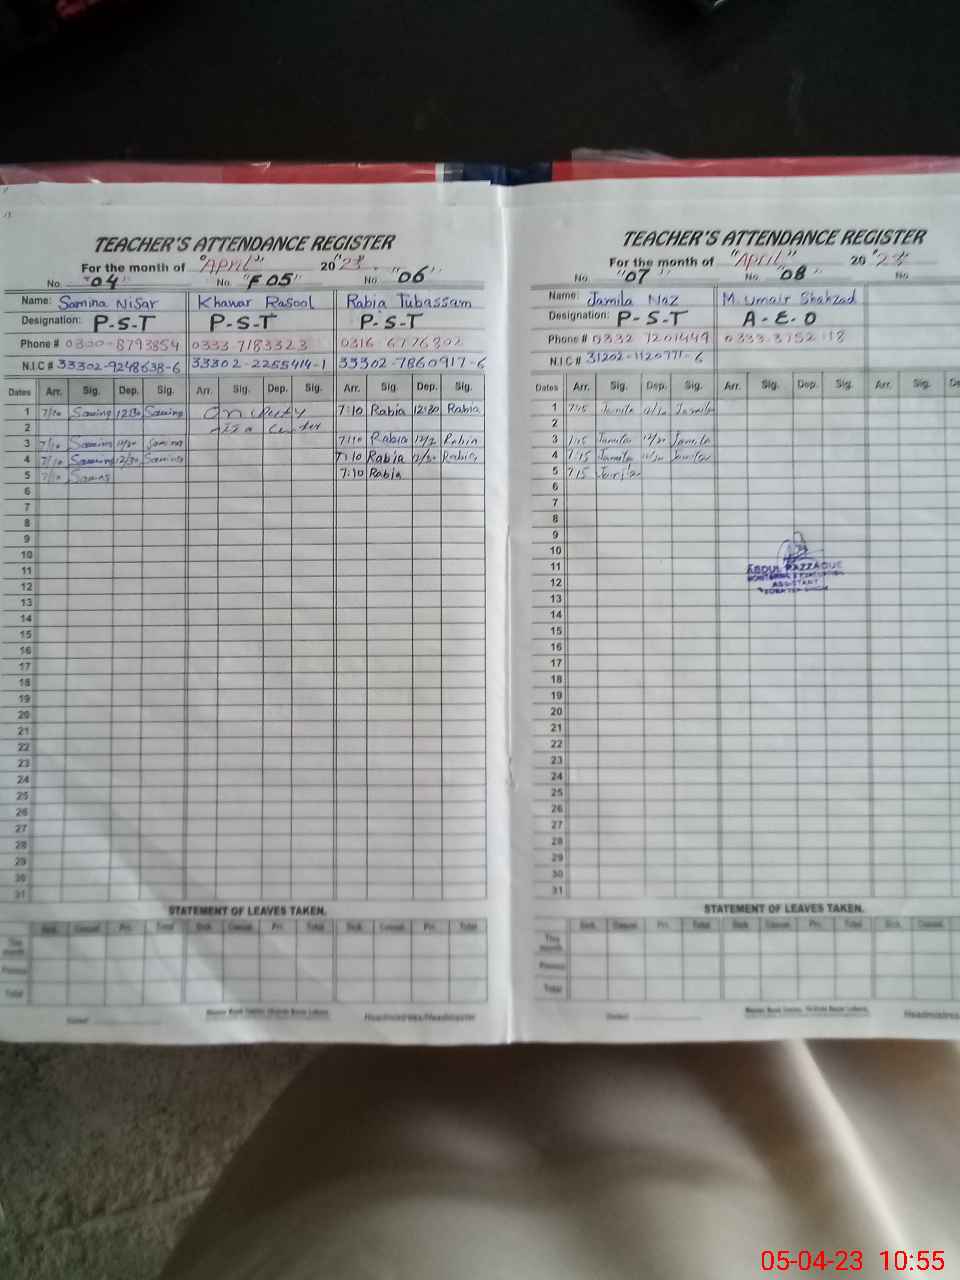 TEACHER'S ATTENDANCE REGISTER
For the month of "April" 20"23"
No. "04" No. "F 05" No. "06"
Name: Samina Nisar Khawar Rasool Rabia Tubassam
Designation: P-S-T P-S-T P-S-T
Phone # 0300-8793854 0333-7183323 0316-6776802
N.I.C # 33302-9248638-6 33302-2255414-1 33302-7860917-6
Dates Arr. Sig. Dep. Sig. Arr. Sig. Dep. Sig. Arr. Sig. Dep. Sig.
1 7/10 Samina 12:30 Samina On Duty 7:10 Rabia 12:30 Rabia
2 Center
3 7/10 Samina 12/30 Samina 7:10 Rabia Rabia
4 7/10 Samina 12/30 Samina 7:10 Rabia 12/30 Rabia
5 7/10 Samina 7:10 Rabia
6
7
8
9
10
11
12
13
14
15
16
17
18
19
20
21
22
23
24
25
26
27
28
29
30
31
STATEMENT OF LEAVES TAKEN.
Sick. Casual. Pri. Total Sick. Casual. Pri. Total Sick. Casual. Pri. Total
This month
Previous
Total
Headmistress/Headmaster
TEACHER'S ATTENDANCE REGISTER
For the month of "April" 20"23"
No. "07" No. "08" No.
Name: Jamila Naz M. Umair Shahzad
Designation: P-S-T A-E-O
Phone # 0332 7201449 0333-3752 18
N.I.C # 31202-1120771-6
Dates Arr. Sig. Dep. Sig. Arr. Sig. Dep. Sig. Arr. Sig.
1 7:15 Jamila 12/30 Jamila
2
3 7:15 Jamila 12/30 Jamila
4 7:15 Jamila 12/30 Jamila
5 7:15 Jamila
6
7
8
9
10
11
12
13
14
15
16
17
18
19
20
21
22
23
24
25
26
27
28
29
30
31
ABDUL RAZZAQUE
MONITORING & EVALUATION
ASSISTANT
STATEMENT OF LEAVES TAKEN.
Sick. Casual. Pri. Total Sick. Casual. Pri. Total Sick. Casual.
This month
Previous
Total
05-04-23 10:55